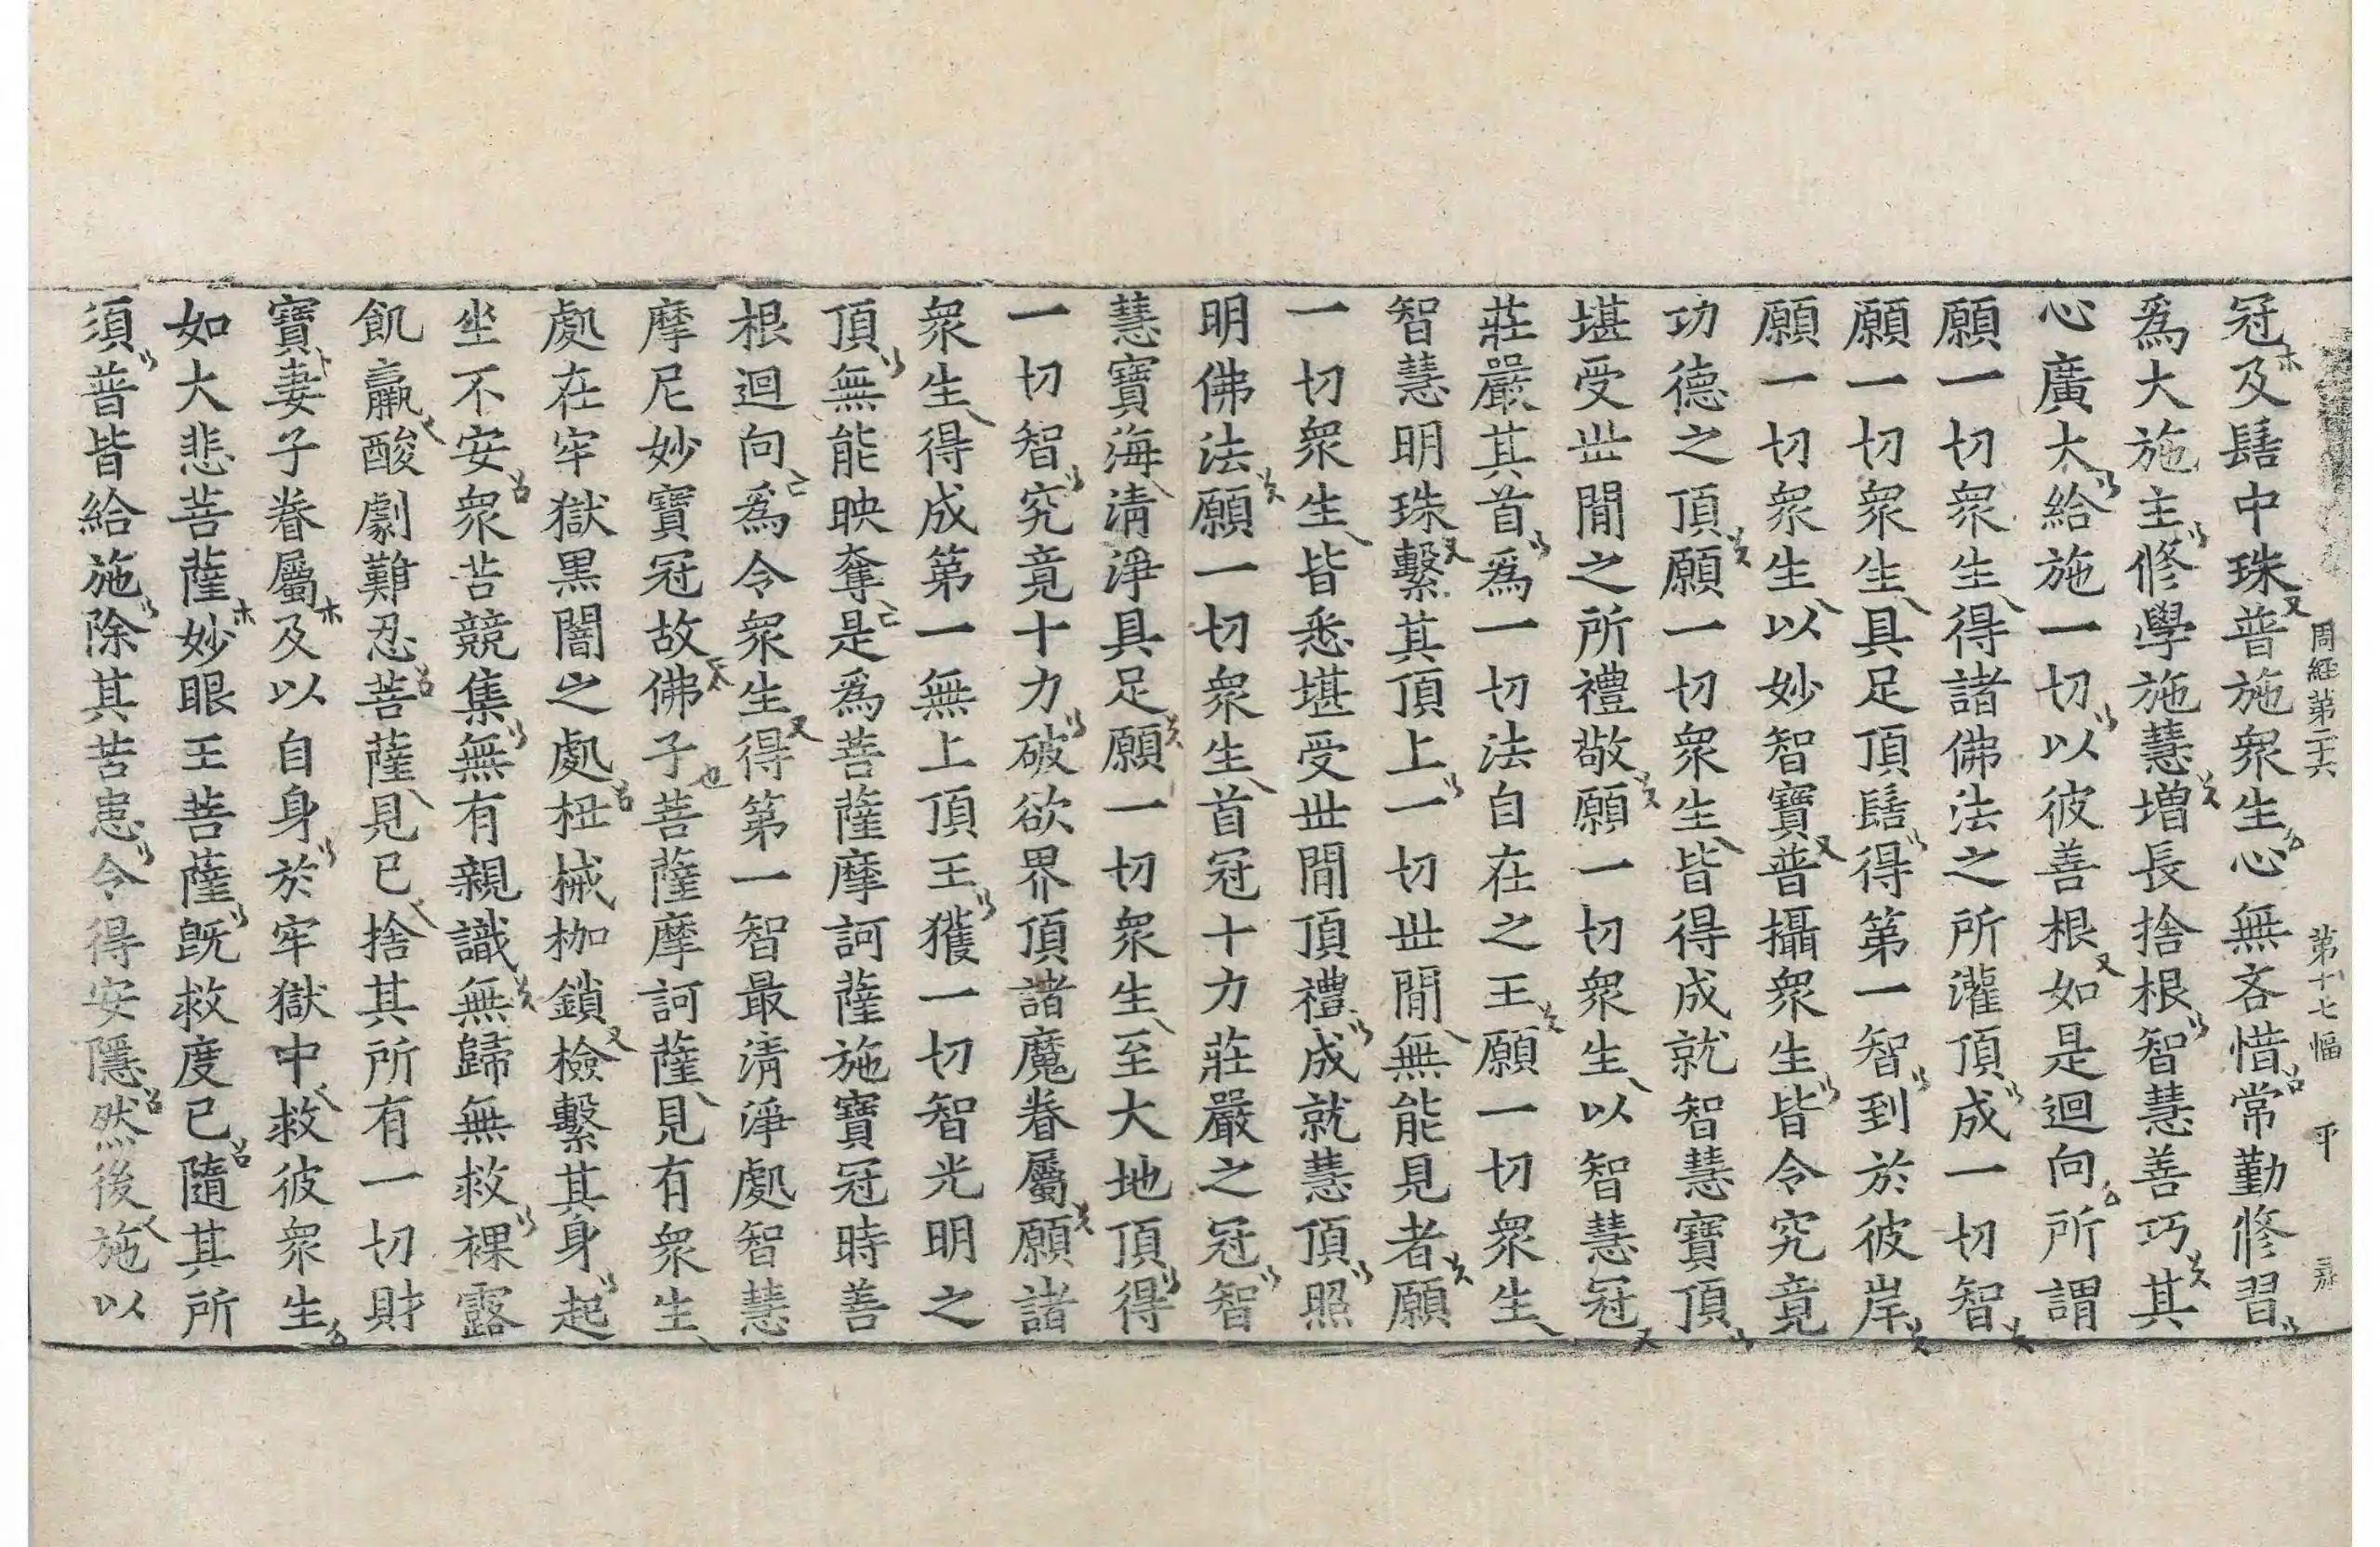 周經第二十六 第十七幅 平
冠及髻中珠普施衆生心無吝惜常勤修習
爲大施主修學施慧增長捨根智慧善巧其
心廣大給施一切以彼善根如是迴向所謂
願一切衆生得諸佛法之所灌頂成一切智
願一切衆生具足頂髻得第一智到於彼岸
願一切衆生以妙智寶普攝衆生皆令究竟
功德之頂願一切衆生皆得成就智慧寶頂
堪受世間之所禮敬願一切衆生以智慧冠
莊嚴其首爲一切法自在之王願一切衆生
智慧明珠繫其頂上一切世間無能見者願
一切衆生皆悉堪受世間頂禮成就慧頂照
明佛法願一切衆生首冠十力莊嚴之冠智
慧寶海淸淨具足願一切衆生至大地頂得
一切智究竟十力破欲界頂諸魔眷屬願諸
衆生得成第一無上頂王獲一切智光明之
頂無能映奪是爲菩薩摩訶薩施寶冠時善
根迴向爲令衆生得第一智最淸淨處智慧
摩尼妙寶冠故佛子菩薩摩訶薩見有衆生
處在牢獄黑闇之處杻械枷鎖檢繫其身起
坐不安衆苦競集無有親識無歸無救裸露
飢羸酸劇難忍菩薩見已捨其所有一切財
寶妻子眷屬及以自身於牢獄中救彼衆生
如大悲菩薩妙眼王菩薩旣救度已隨其所
須普皆給施除其苦患令得安隱然後施以